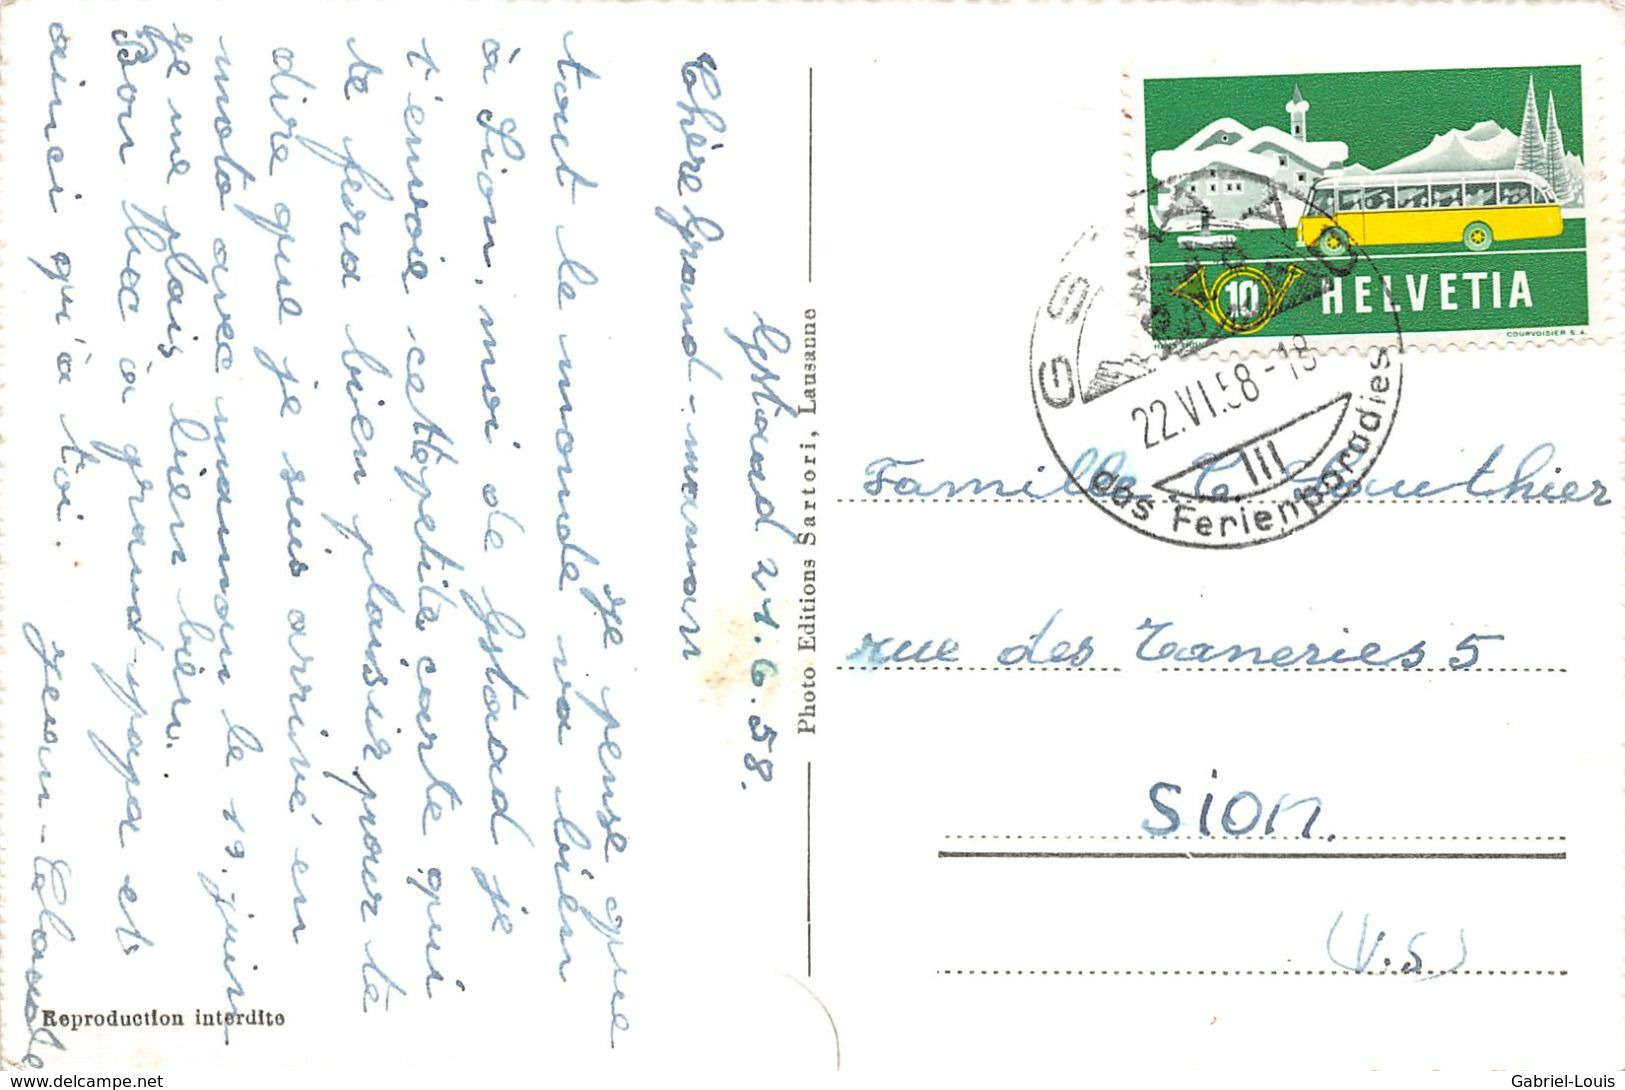 Gstaad 21.6.58.
Chère Grand-maman
Je pense que
tout le monde va bien
à Sion, moi de Gstaad je
t'envoie cette petite carte qui
te fera bien plaisir pour te
dire que je suis arrivé en
moto avec maman le 19. juin
je me plais bien bien.
Bon bec à grand-papa et
ainci qu'à toi.
Jean-Claude
Reproduction interdite
Photo Editions Sartori, Lausanne
10 HELVETIA
COURVOISIER S.A.
GSTAAD
22.VI.58-18
das Ferienparadies
Famille C. Gauthier
rue des Taneries 5
Sion.
(V.S)
delcampe.net
Gabriel-Louis